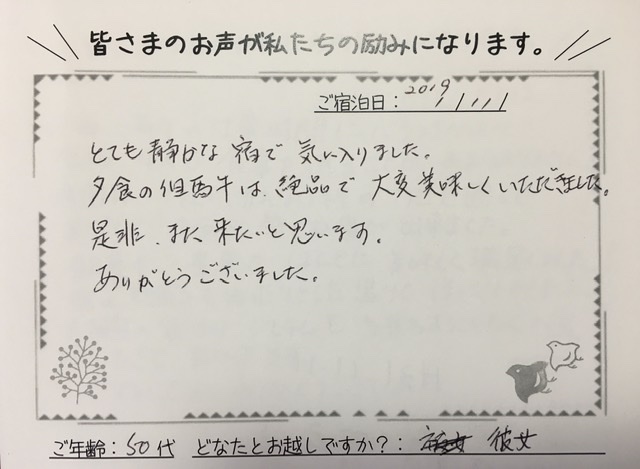 皆さまのお声が私たちの励みになります。
ご宿泊日: 2019/11/11
とても静かな宿で気に入りました。
夕食の但馬牛は、絶品で大変美味しくいただきました。
是非、また来たいと思います。
ありがとうございました。
ご年齢: 50代 どなたとお越しですか?: 彼女